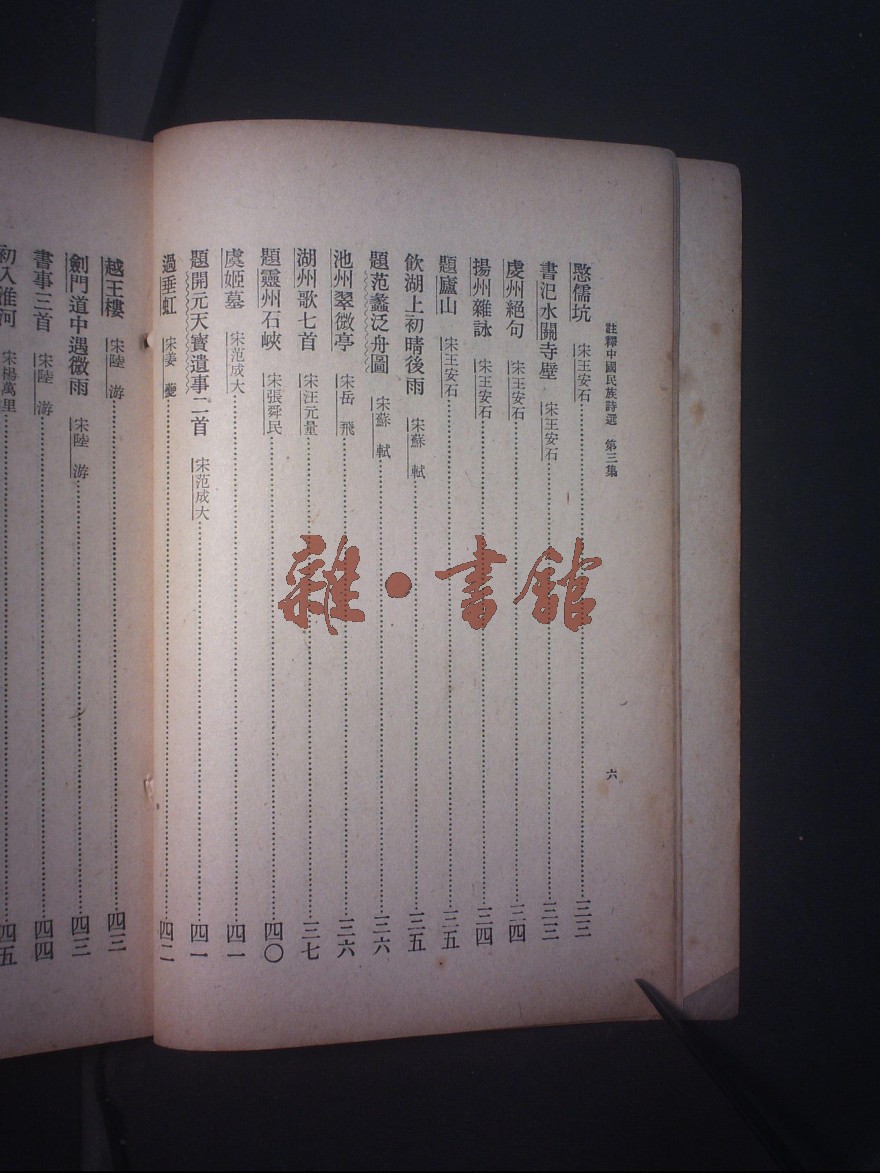 註釋中國民族詩選 第三集 六
愍儒坑 宋王安石 三三
書汜水關寺壁 宋王安石 三三
虔州絕句 宋王安石 三四
揚州雜詠 宋王安石 三四
題廬山 宋王安石 三五
飲湖上初晴後雨 宋蘇軾 三五
題范蠡泛舟圖 宋蘇軾 三六
池州翠微亭 宋岳飛 三六
湖州歌七首 宋汪元量 三七
題靈州石峽 宋張舜民 四〇
虞姬墓 宋范成大 四一
題開元天寶遺事二首 宋范成大 四一
過垂虹 宋姜夔 四二
越王樓 宋陸游 四三
劍門道中遇微雨 宋陸游 四三
書事三首 宋陸游 四四
初入淮河 宋楊萬里 四五
雜·書館